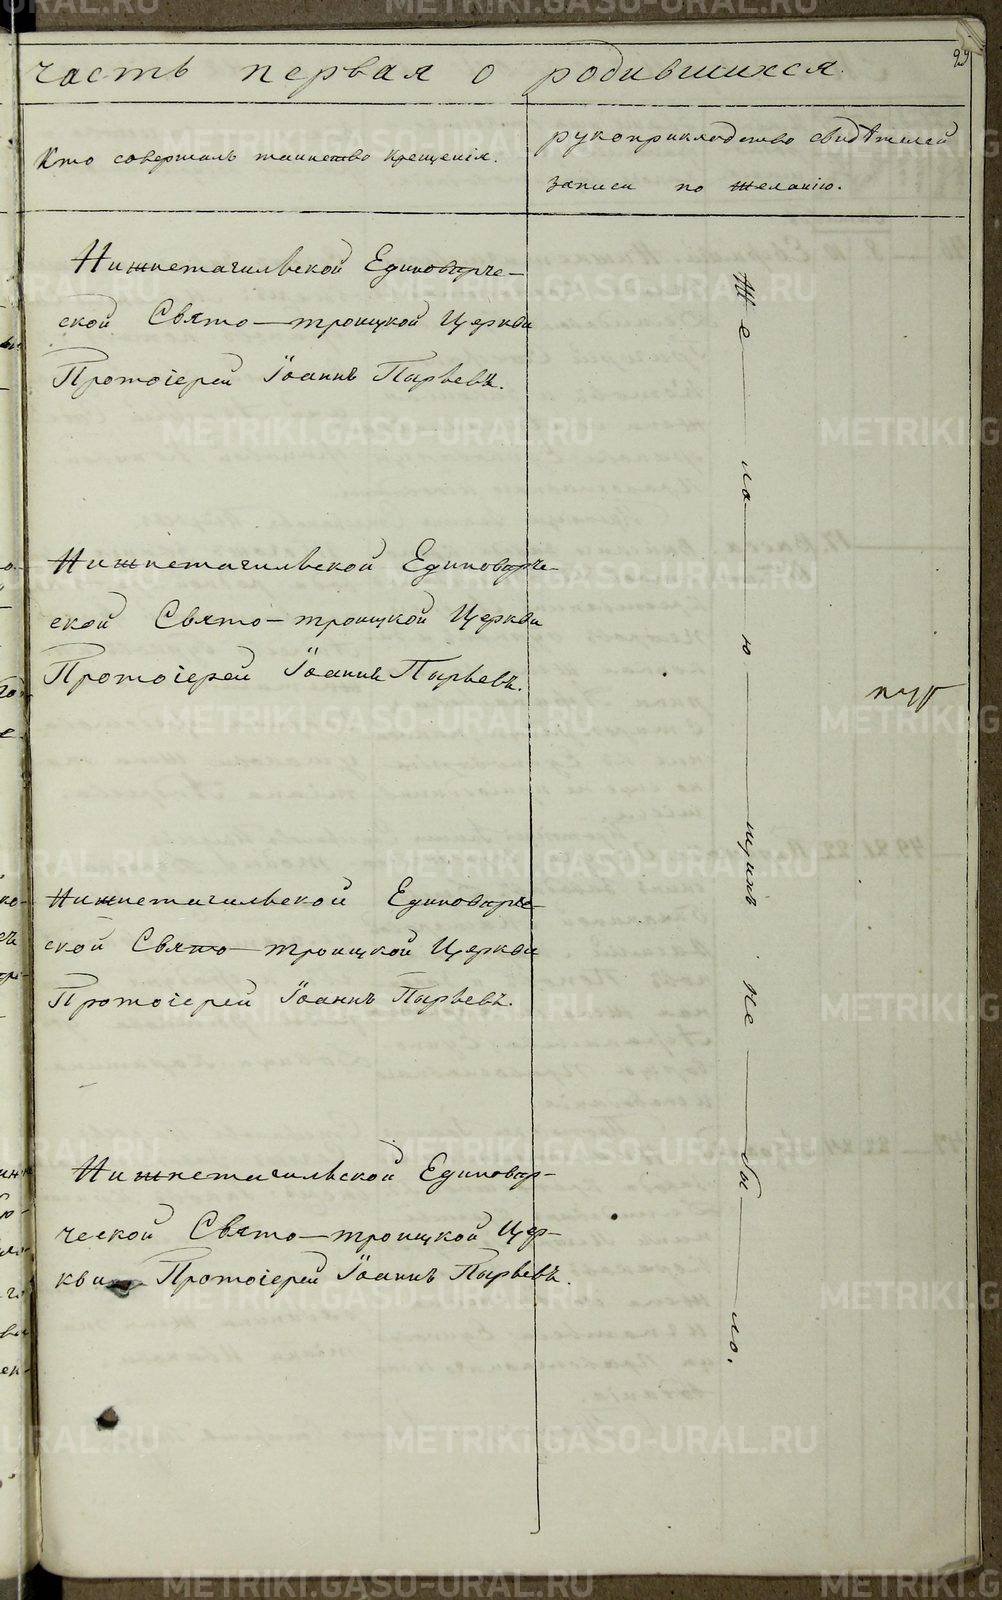 часть первая о родившихся.
Кто совершалъ таинство крещенія.
рукоприкладство свидѣтелей
записи по желанію.
Нижнетагильской Единовѣрче-
ской Свято-троицкой Церкви
Протоіерей Іоаннъ Пырьевъ.
Нижнетагильской Единовѣрче-
ской Свято-троицкой Церкви
Протоіерей Іоаннъ Пырьевъ.
Нижнетагильской Единовѣрче-
ской Свято-троицкой Церкви
Протоіерей Іоаннъ Пырьевъ.
Нижнетагильской Единовѣр-
ческой Свято-троицкой Цер-
кви Протоіерей Іоаннъ Пырьевъ.
Же—ла—ю—щихъ не—бы—ло.
METRIKI.GASO-URAL.RU